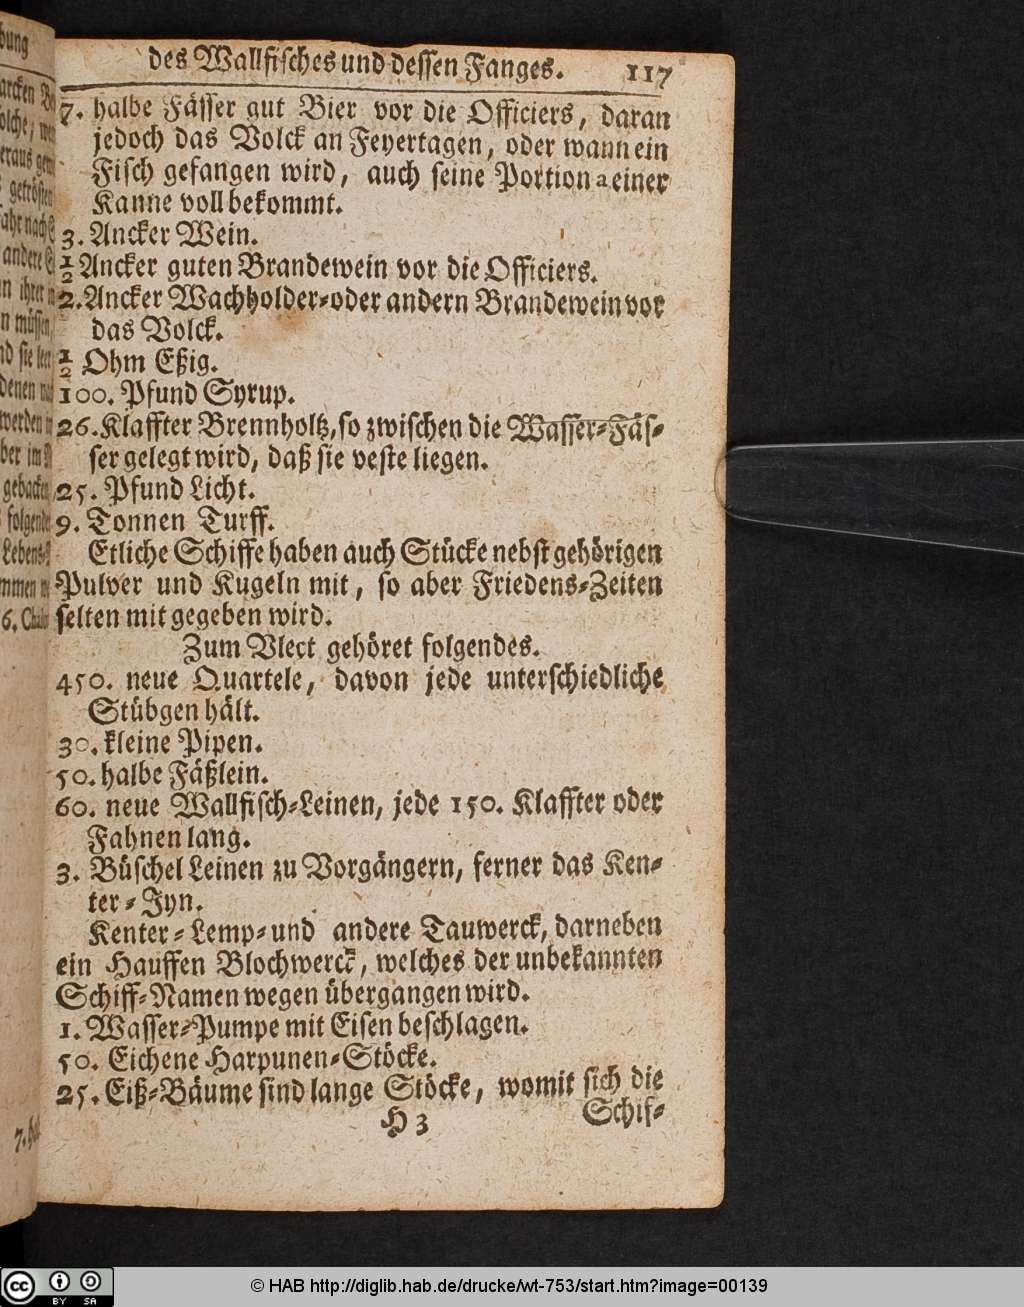 des Wallfisches und dessen Fanges. 117
7. halbe Fässer gut Bier vor die Officiers, daran
jedoch das Volck an Feyertagen, oder wann ein
Fisch gefangen wird, auch seine Portion a einer
Kanne voll bekommt.
3. Ancker Wein.
½ Ancker guten Brandewein vor die Officiers.
2. Ancker Wachholder-oder andern Brandewein vor
das Volck.
½ Ohm Eßig.
100. Pfund Syrup.
26. Klaffter Brennholtz, so zwischen die Wasser-Fäs-
ser gelegt wird, daß sie veste liegen.
25. Pfund Licht.
9. Tonnen Turff.
Etliche Schiffe haben auch Stücke nebst gehörigen
Pulver und Kugeln mit, so aber Friedens-Zeiten
selten mit gegeben wird.
Zum Vleet gehöret folgendes.
450. neue Quartele, davon jede unterschiedliche
Stübgen hält.
30. kleine Pipen.
50. halbe Fäßlein.
60. neue Wallfisch-Leinen, jede 150. Klaffter oder
Fahnen lang.
3. Büschel Leinen zu Vorgängern, ferner das Ken-
ter-Jyn.
Kenter-Lemp-und andere Tauwerck, darneben
ein Hauffen Blochwerck, welches der unbekannten
Schiff-Namen wegen übergangen wird.
1. Wasser-Pumpe mit Eisen beschlagen.
50. Eichene Harpunen-Stöcke.
25. Eiß-Bäume sind lange Stöcke, womit sich die
H 3 Schif-
© HAB http://diglib.hab.de/drucke/wt-753/start.htm?image=00139
cc BY SA